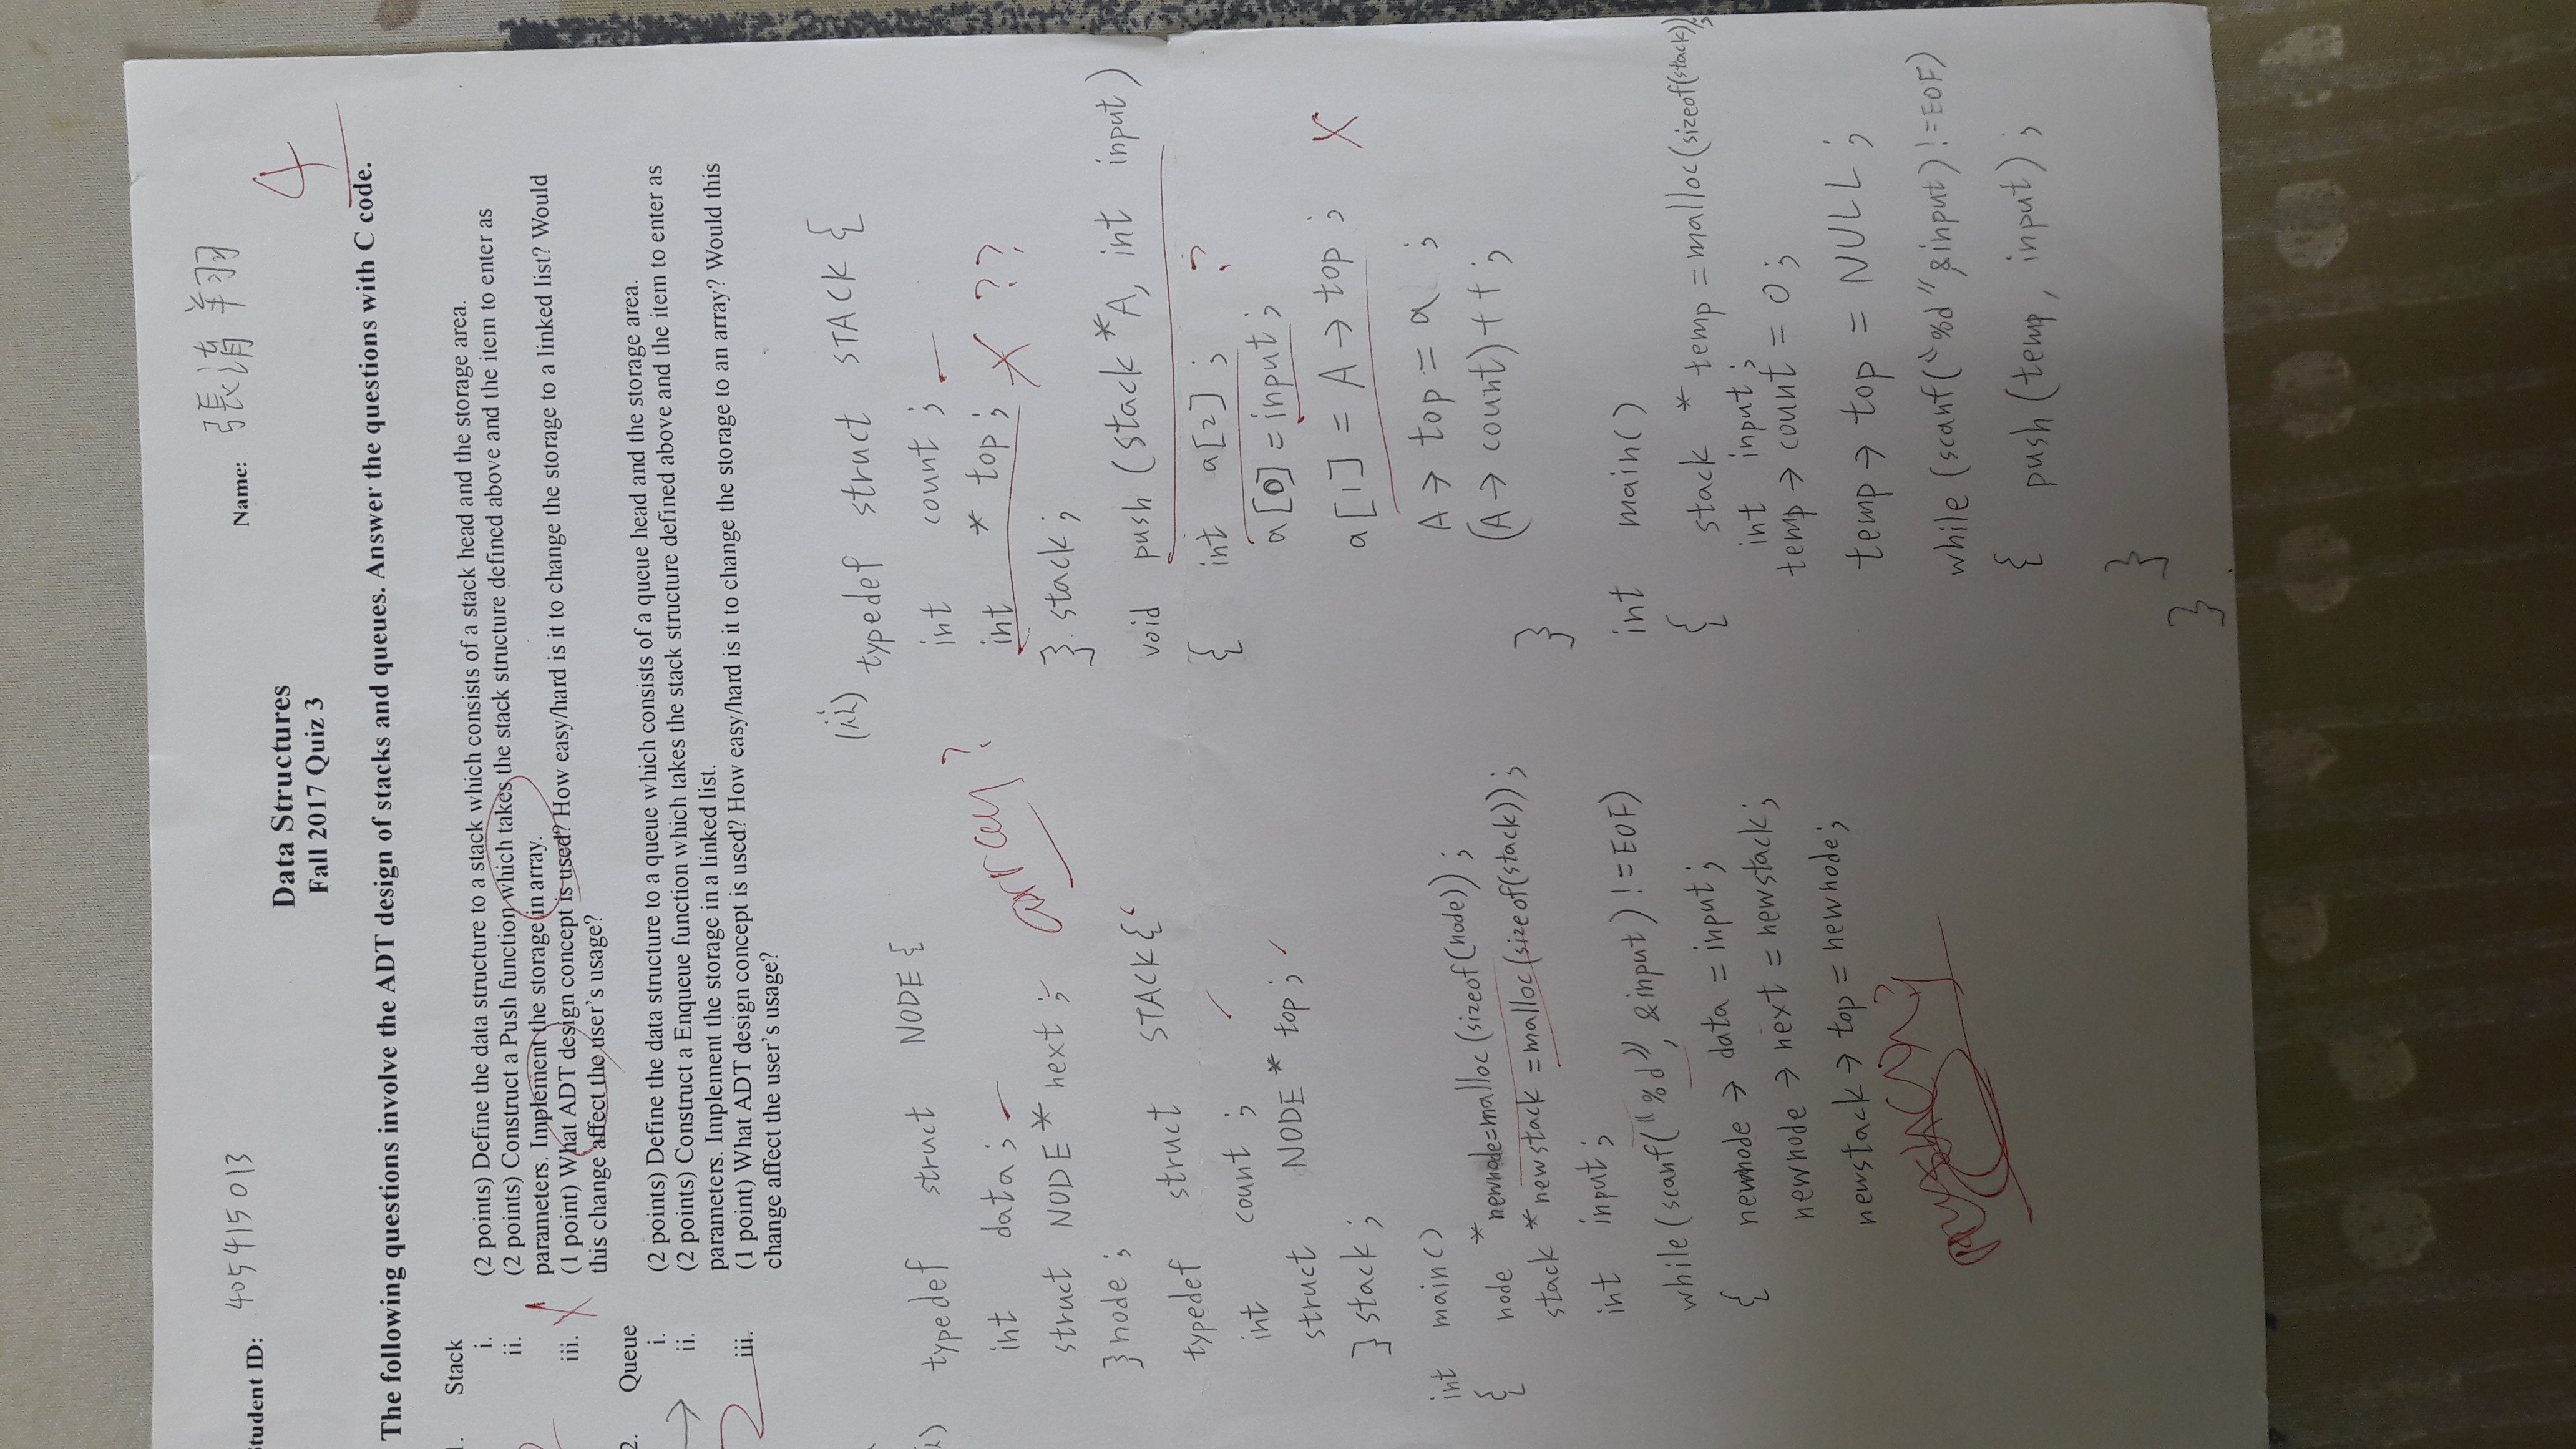 Student ID: 405415013
Name: 張清翔
4
Data Structures
Fall 2017 Quiz 3
The following questions involve the ADT design of stacks and queues. Answer the questions with C code.
1. Stack
i. (2 points) Define the data structure to a stack which consists of a stack head and the storage area.
ii. (2 points) Construct a Push function which takes the stack structure defined above and the item to enter as
parameters. Implement the storage in array.
iii. (1 point) What ADT design concept is used? How easy/hard is it to change the storage to a linked list? Would
this change affect the user's usage?
2. Queue
i. (2 points) Define the data structure to a queue which consists of a queue head and the storage area.
ii. (2 points) Construct a Enqueue function which takes the stack structure defined above and the item to enter as
parameters. Implement the storage in a linked list.
2
iii. (1 point) What ADT design concept is used? How easy/hard is it to change the storage to an array? Would this
change affect the user's usage?
i) typedef struct NODE {
int data;
struct NODE * next;
} node;
array?
typedef struct STACK {
int count;
struct NODE * top;
} stack;
int main()
{ node *newnode=malloc(sizeof(node));
stack *newstack =malloc(sizeof(stack));
int input;
while(scanf("%d", &input) != EOF)
{ newnode → data = input;
newnode → next = newstack;
newstack → top = newnode;
(ii) typedef struct STACK {
int count;
int * top; X ??
} stack;
void push (stack *A, int input)
{ int a[2]; ?
a[0] = input;
a[1] = A → top; X
A → top = a ;
(A → count)++;
}
int main()
{ stack * temp = malloc(sizeof(stack));
int input;
temp → count = 0;
temp → top = NULL;
while (scanf("%d",&input) != EOF)
{ push (temp, input);
}
}